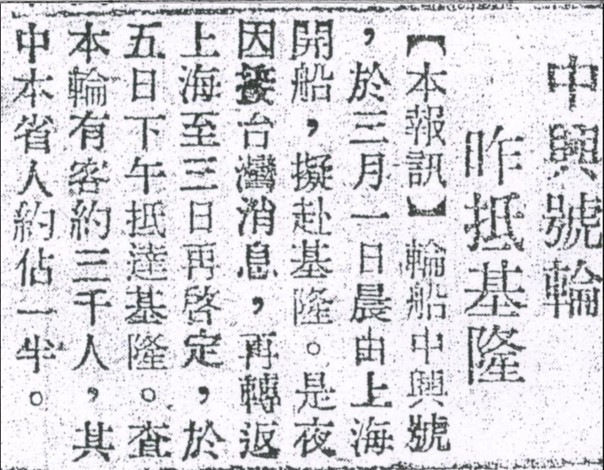 中興號輪
昨抵基隆
【本報訊】輪船中興號
，於三月一日晨由上海
開船，擬赴基隆。是夜
因接台灣消息，再轉返
上海至三日再啓定，於
五日下午抵達基隆。查
本輪有客約三千人，其
中本省人約佔一半。